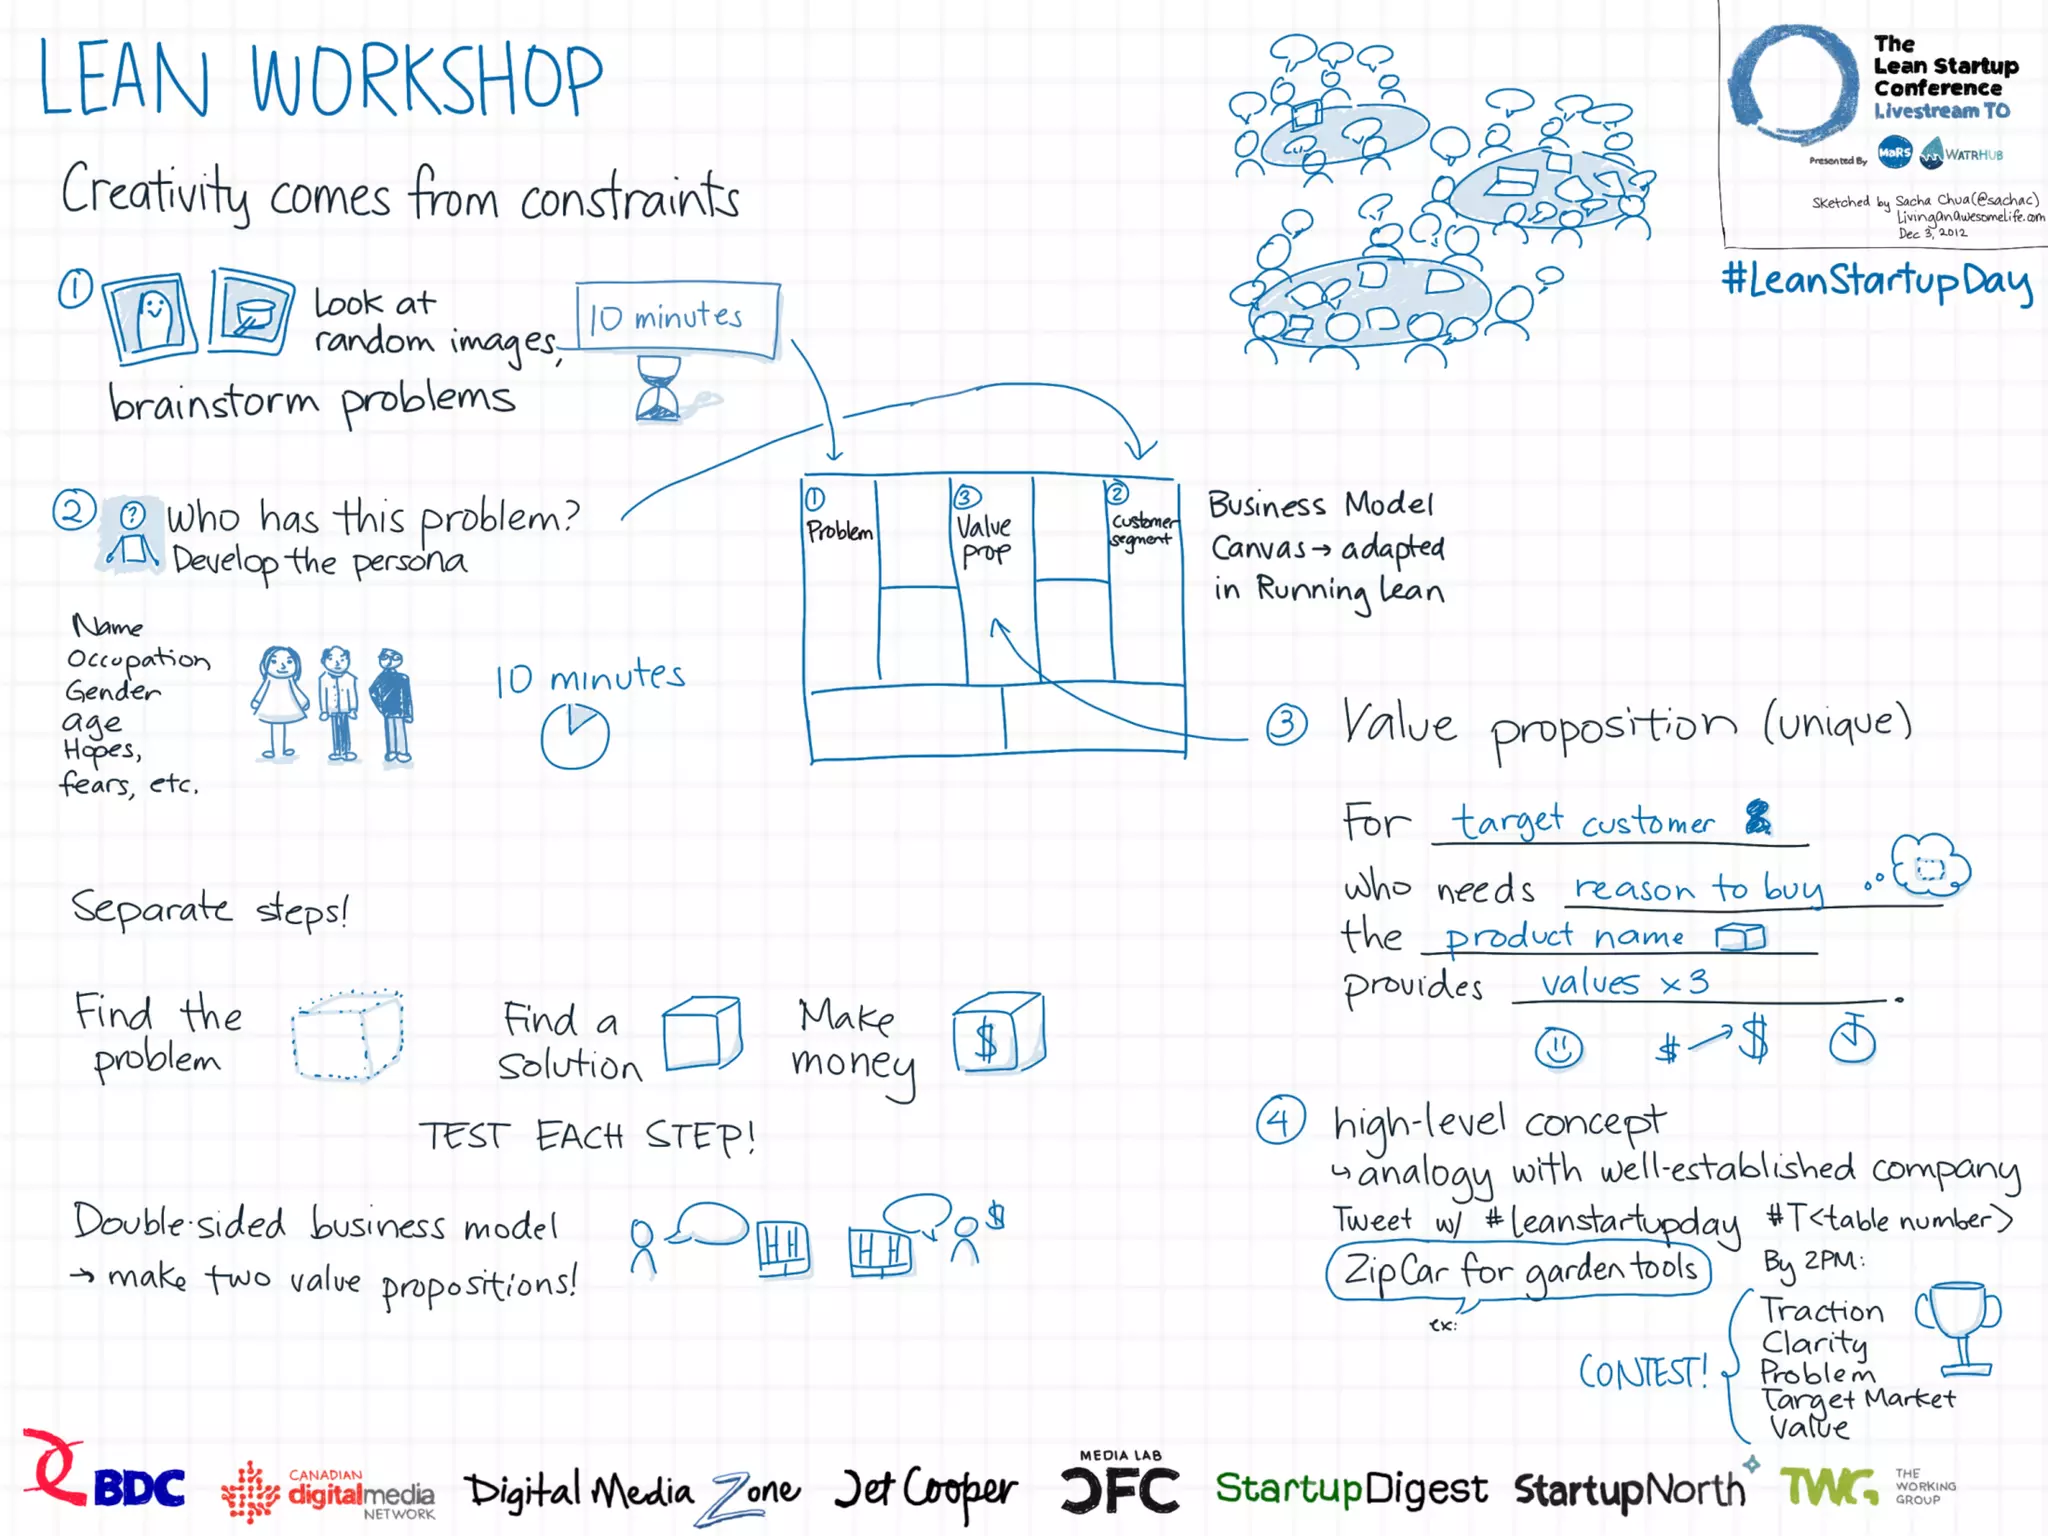 LEAN WORKSHOP
Creativity comes from constraints
1
Look at
random images,
brainstorm problems
10 minutes
2
?
Who has this problem?
Develop the persona
Name
Occupation
Gender
age
Hopes,
fears, etc.
10 minutes
1
Problem
3
Value
prop
2
customer
segment
Business Model
Canvas → adapted
in Running Lean
The
Lean Startup
Conference
Livestream TO
Presented By
MaRS
WATRHUB
Sketched by Sacha Chua (@sachac)
LivingAnAwesomeLife.com
Dec 3, 2012
#LeanStartupDay
3
Value proposition (unique)
For target customer
who needs reason to buy
the product name
provides values x 3.
$ → $
Separate steps!
Find the
problem
Find a
solution
Make
money
$
TEST EACH STEP!
Double-sided business model
→ make two value propositions!
$
4
high-level concept
↳ analogy with well-established company
Tweet w/ #leanstartupday #T<table number>
ZipCar for garden tools
ex:
By 2PM:
CONTEST!
Traction
Clarity
Problem
Target Market
Value
BDC
CANADIAN
digitalmedia
NETWORK
Digital Media Zone
Jet Cooper
MEDIA LAB
CFC
StartupDigest
StartupNorth
TWG
THE
WORKING
GROUP